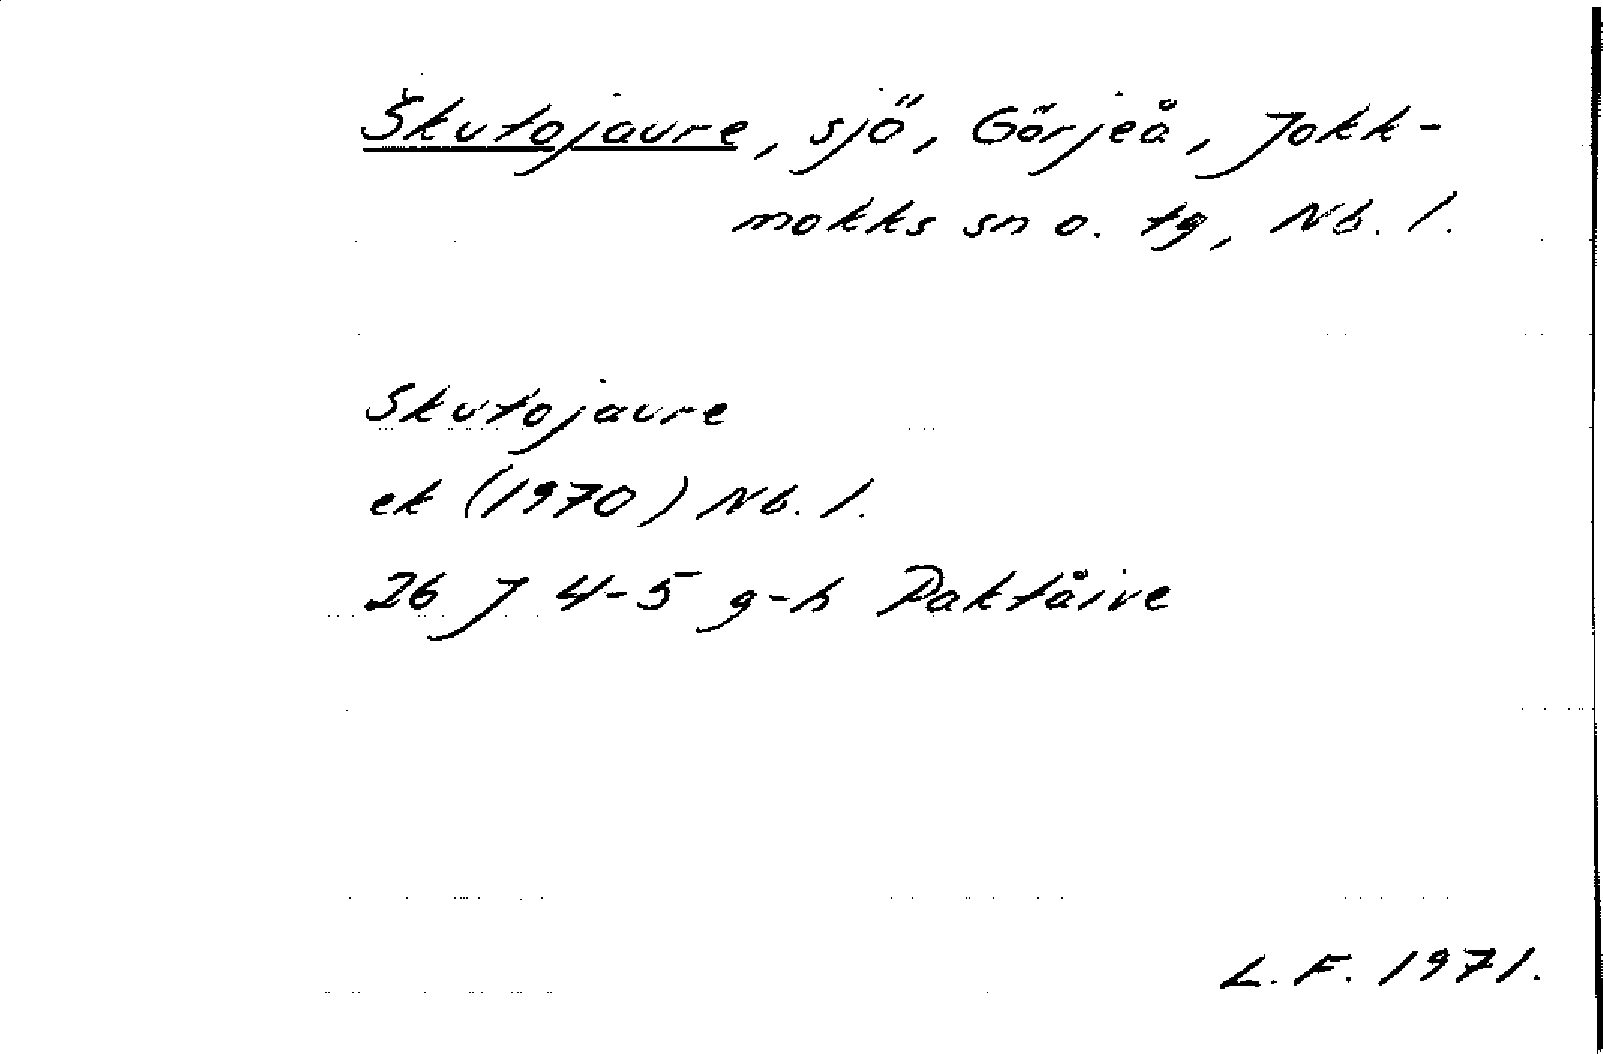 Škutojaure, sjö, Görjeå, Jokk-
mokks sn o. tg, Nb. l.
Skutojaure
ek (1970) Nb. l.
26 J 4-5 g-h Paktåive
L. F. 1971.